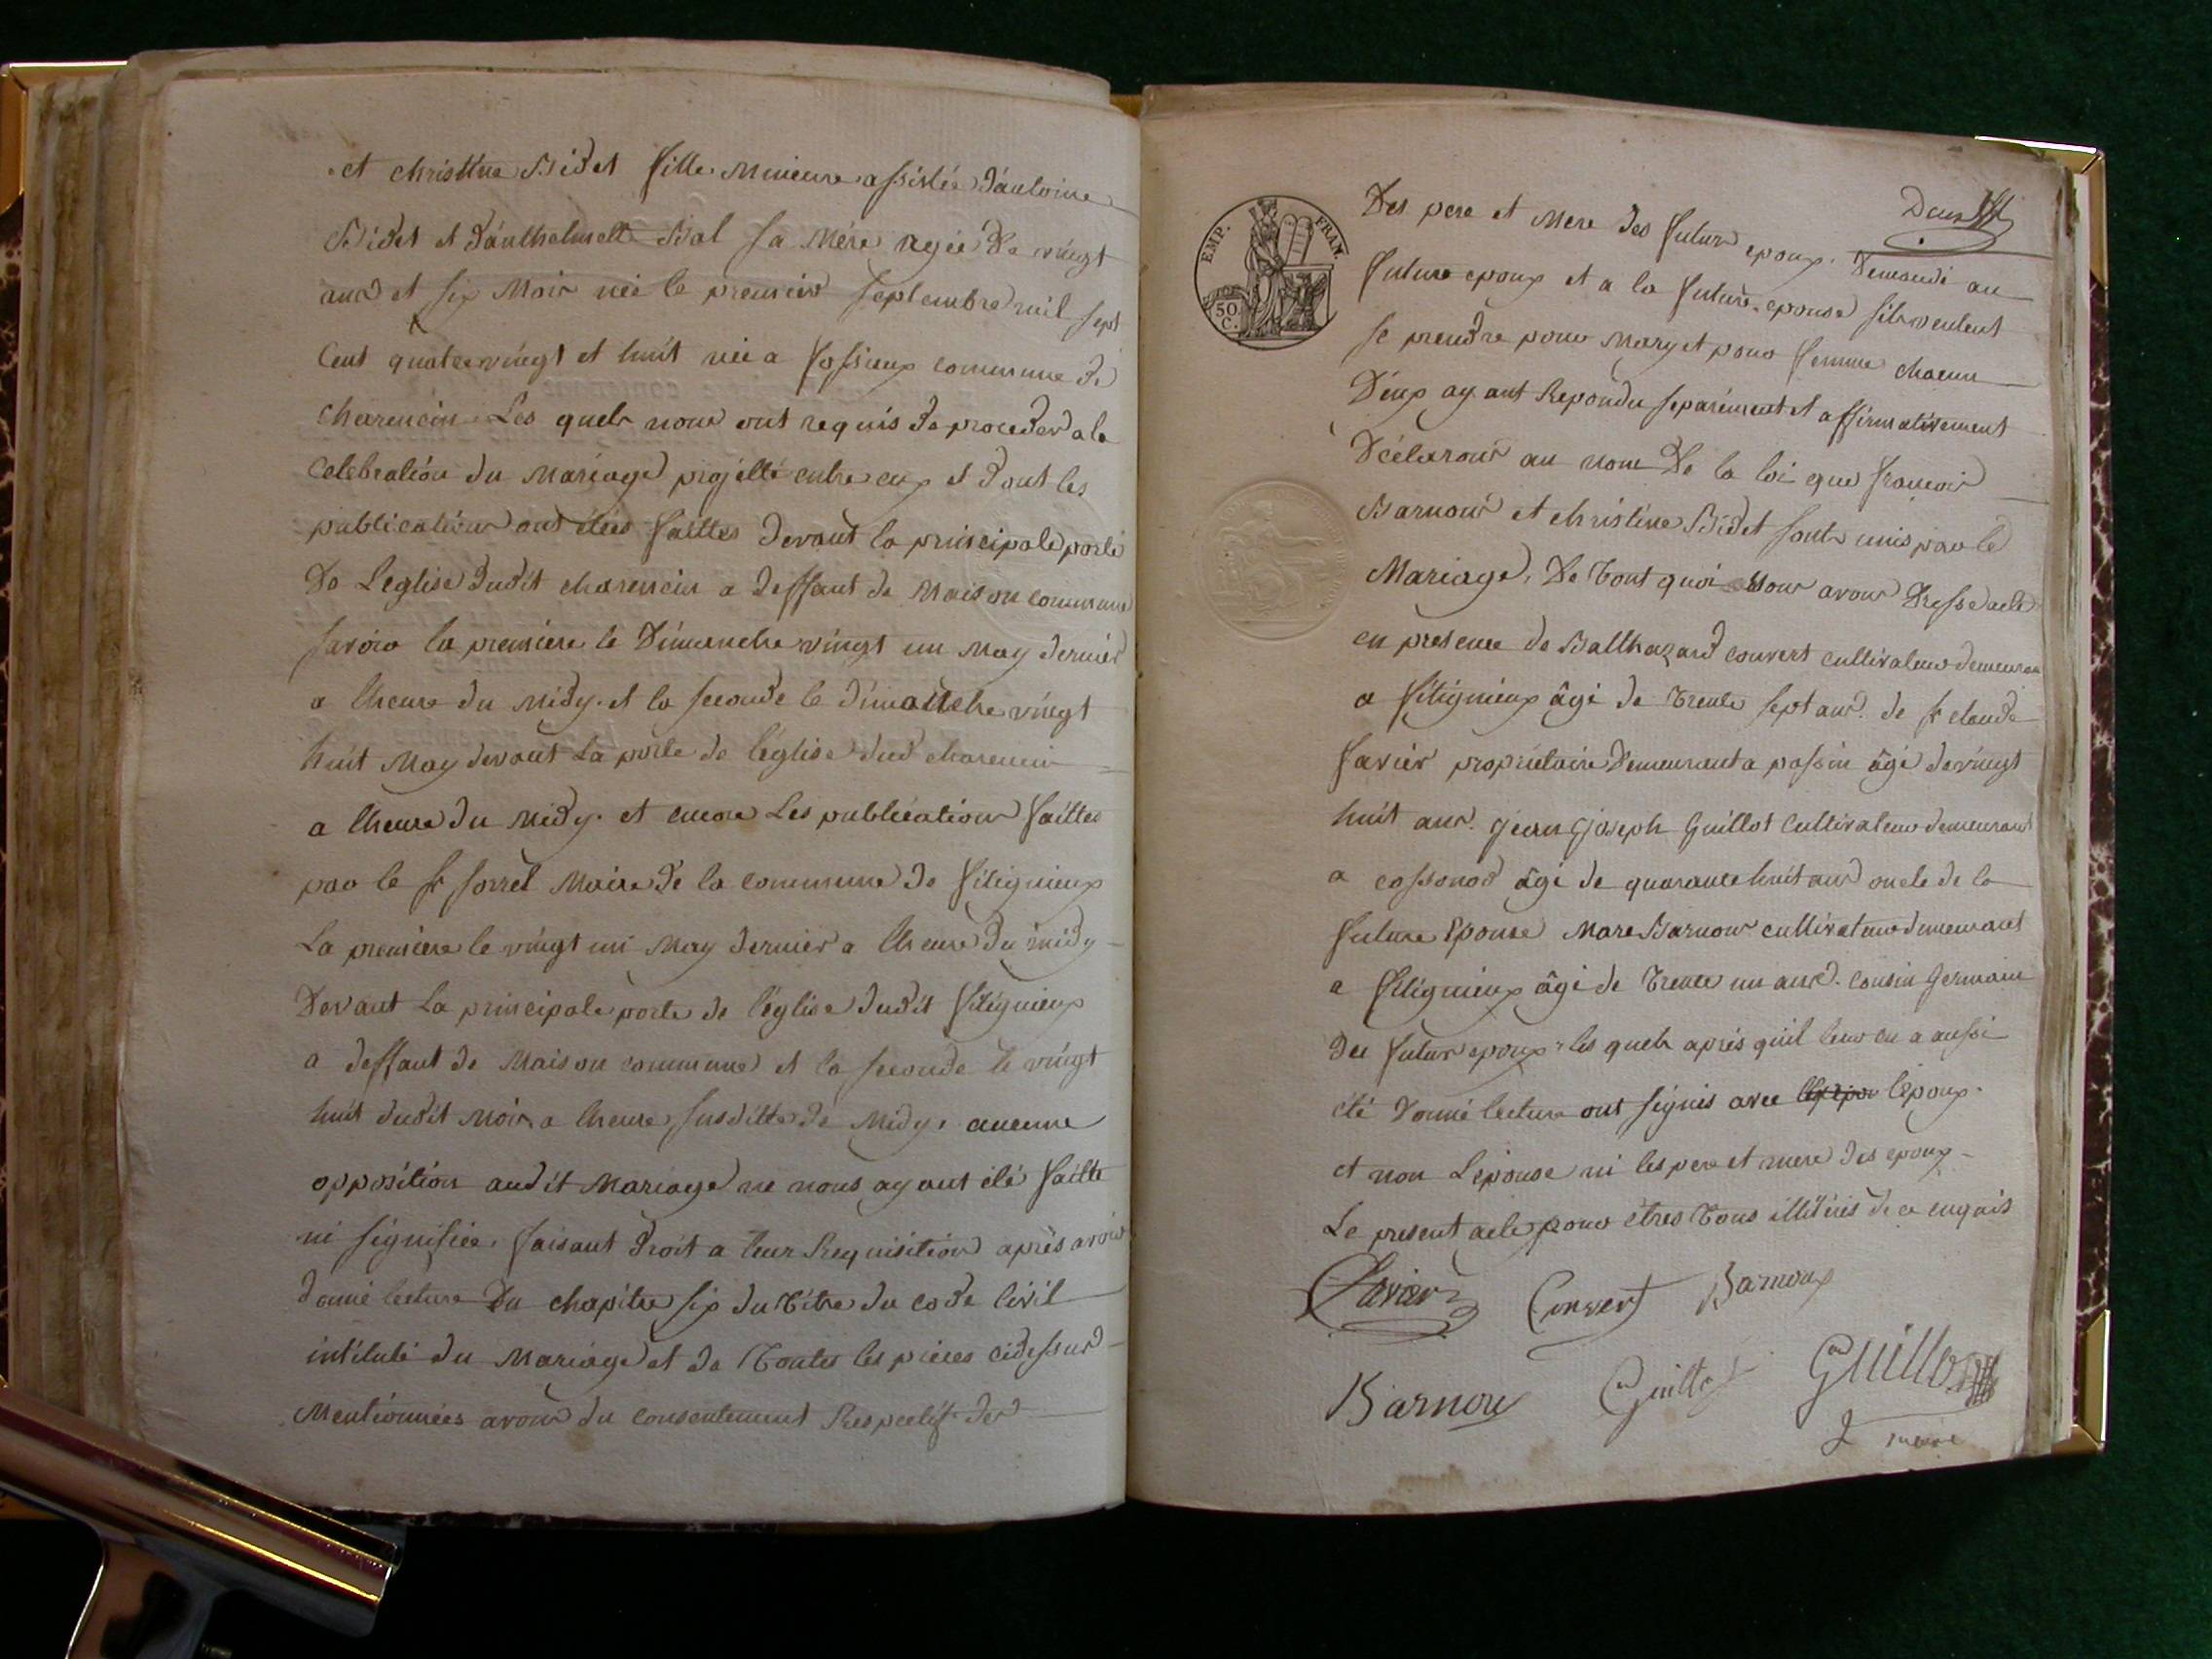 et christine Bidet fille Mineure assistée d'antoine
Bidet et d'anthelmette Bal sa Mère agée De vingt
ans et six Mois née le premier septembre mil sept
Cent quatrevingt et huit née a fossieux commune de
charencin. Les quels nous ont requis de proceder a la
celebration du Mariage projetté entre eux et dont les
publications ont étées faittes devant la principale porte
De L'eglise dudit charencin a deffaut de Maison commune
savoir la premiere le Dimanche vingt un May dernier
a lheure du Midy. et la seconde le dimanche vingt
huit May devant La porte de l'église dud charencin
a lheure du Midy. et encore Les publications faittes
par le sr sorrel Maire de la commune de fitignieux
La premiere le vingt un May dernier a lheure du midy
Devant La principale porte de l'église dudit fitignieux
a deffaut de Maison commune et la seconde le vingt
huit dudit Mois a lheure susditte de Midy, aucune
opposition audit Mariage ne nous ayant été faitte
ni signifiée, faisant droit a leur Requisition après avoir
donné lecture Du chapitre six du Titre du code Civil
intitulé du Mariage et de Toutes les pieces cidessus
Mentionnées avons du consentement Respectif des
EMP. FRAN.
50 C.
Deux
Des pere et Mere des futur epoux. Demandé au
future epoux et a la future epouse sils veulent
se prendre pour Mary et pour femme chacun
D'eux ayant Repondu separément et affirmativement
Déclarons au nom De la loi que francois
Barnoux et christine Bidet sont unis par le
Mariage, De Tout quoi Nous avons Dressé acte
en presence de Balthazard convert cultivateur demeurant
a fitignieux âgé de trente sept ans. de sr claude
savier propriétaire Demeurant a passin âgé de vingt
huit ans. jean joseph Guillot Cultivateur demeurant
a cossonod âgé de quarante huit ans oncle de la
future Epouse Marc Barnoux cultivateur demeurant
a fitignieux âgé de trente un ans. cousin germain
du futur epoux. les quels après qu'il leur en a aussi
été Donné lecture ont signés avec l'époux.
et non L'épouse ni les pere et mere des epoux
Le present acte pour êtres Tous illitérés de ce enquis
Savier Convert Barnoux
Barnoux Guillot Guillot
maire